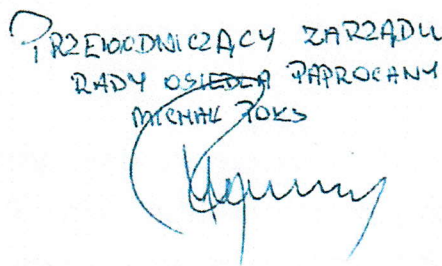 PRZEWODNICZĄCY ZARZĄDU
RADY OSIEDLA PAPROCANY
MICHAŁ